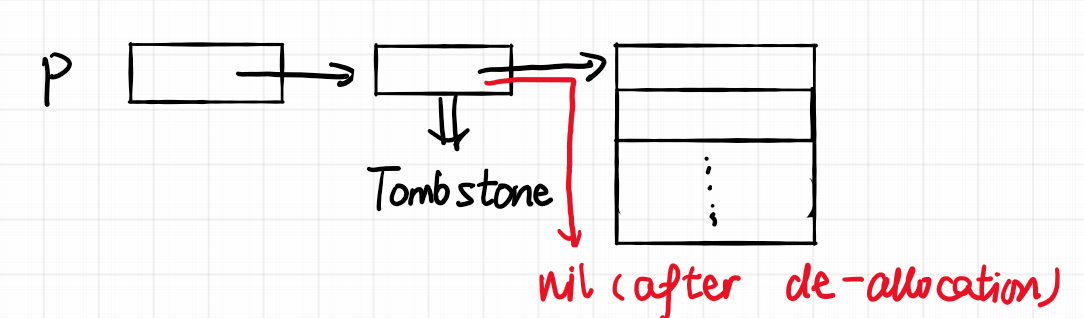 P
Tombstone
nil (after de-allocation)